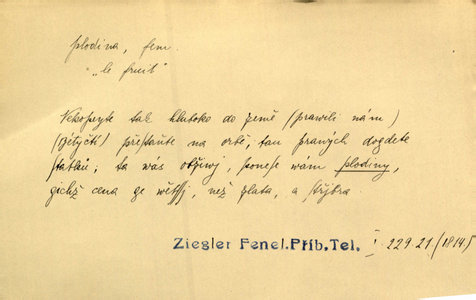 plodina, fem.
"le fruit"
Nekopeyte tak hluboko do země (prawili nám)
(Bětyčtí) přestaňte na orbě, tau prawých dogdete
statků; ta wás obžiwj, ponese wám plodiny,
gichž cena ge wětssj, než zlata, a střjbra.
Ziegler Fenel.Příb.Tel. I 229.21./(1814)